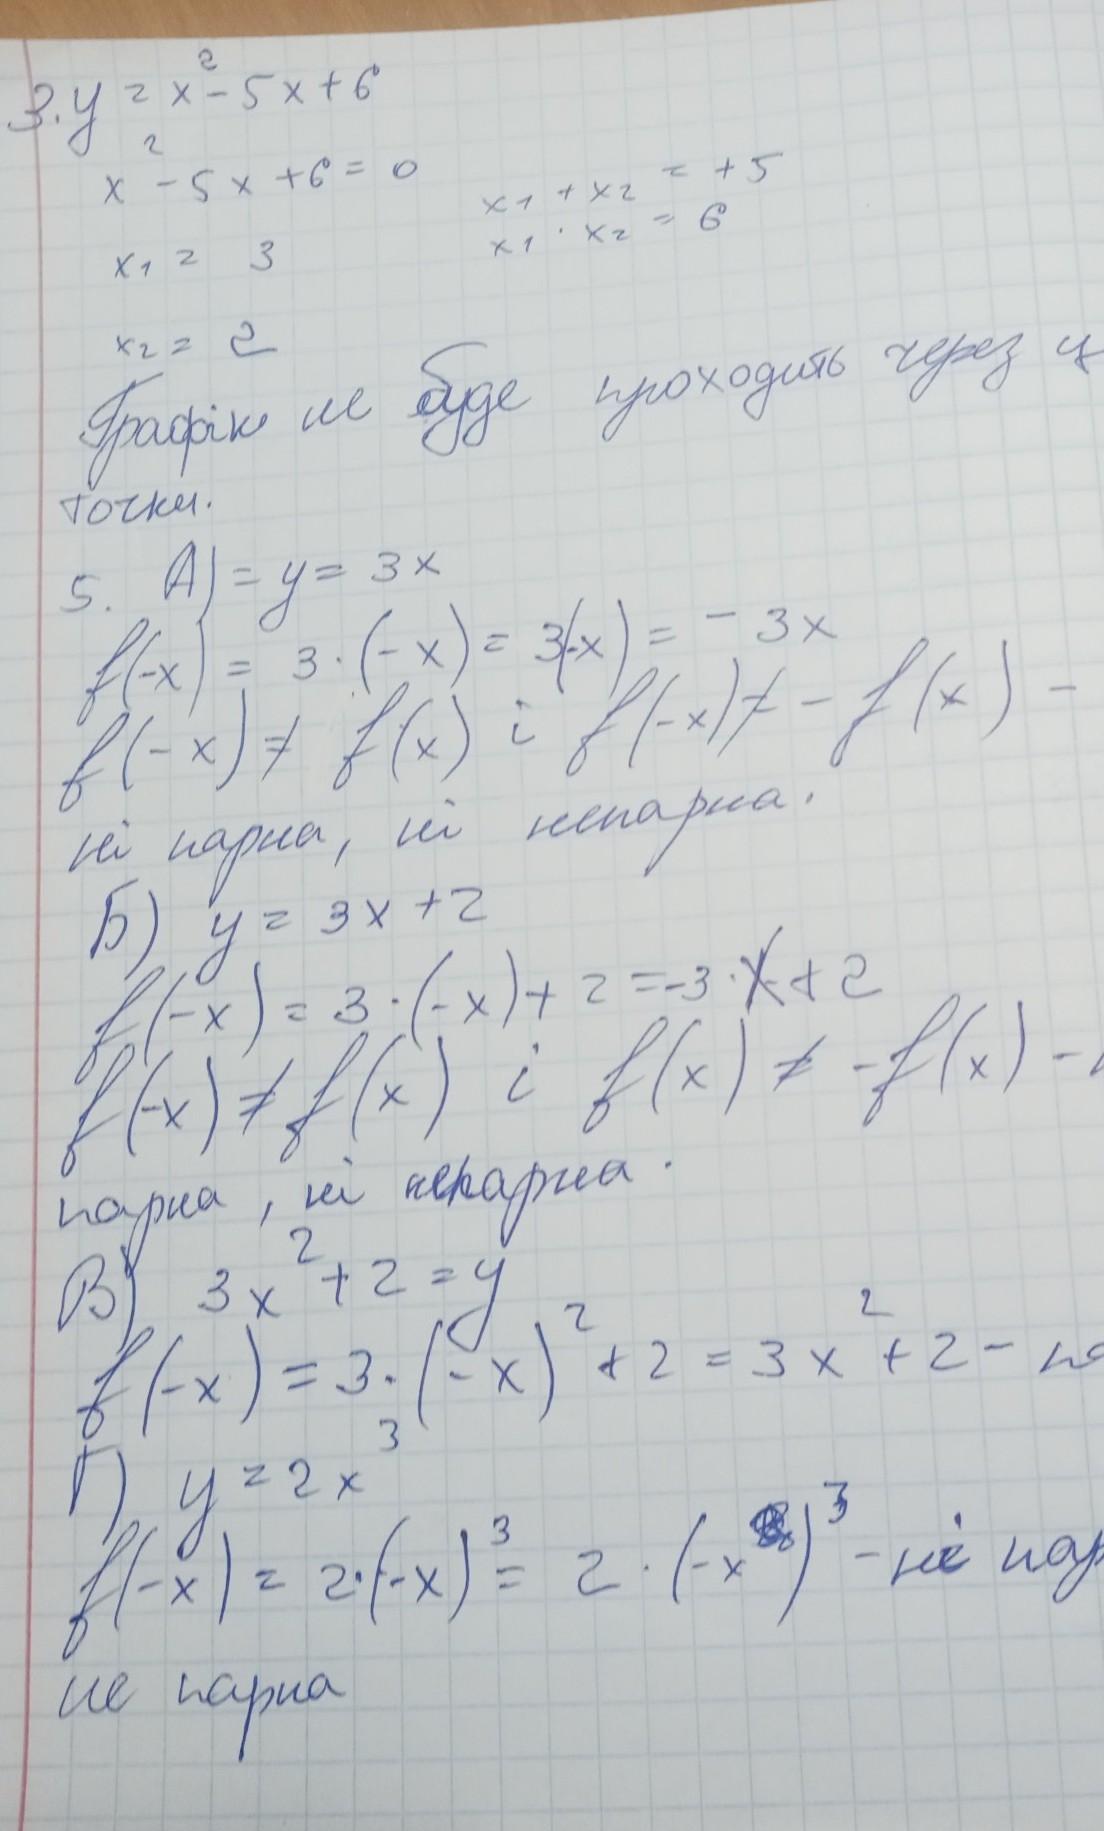 3. y = x² - 5x + 6
x² - 5x + 6 = 0
x₁ + x₂ = +5
x₁ · x₂ = 6
x₁ = 3
x₂ = 2
Графік не буде проходить через ц
точки.
5. А) = y = 3x
f(-x) = 3 · (-x) = 3(-x) = - 3x
f(-x) ≠ f(x) і f(-x) ≠ - f(x) -
ні парна, ні непарна.
Б) y = 3x + 2
f(-x) = 3 · (-x) + 2 = -3 · x + 2
f(-x) ≠ f(x) і f(x) ≠ -f(x) -
парна, ні непарна.
В) 3x² + 2 = y
f(-x) = 3 · (-x)² + 2 = 3x² + 2 - па
Г) y = 2x³
f(-x) = 2 · (-x)³ = 2 · (-x)³ - ні пар
не парна